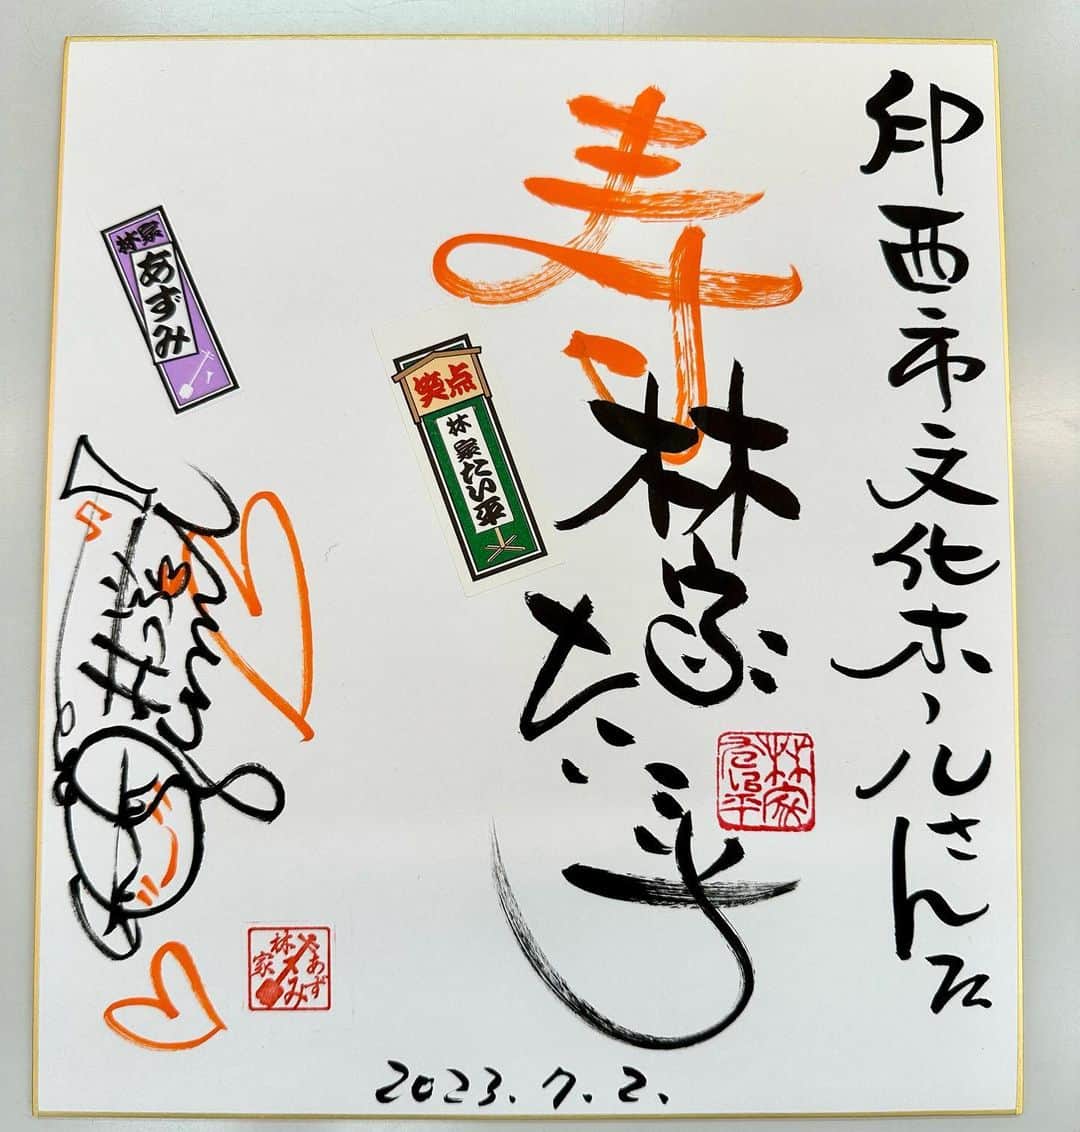 印西市文化ホールさん江
寿
林家たい平
林家
たい平
笑点
林家たい平
林家
あずみ
林家
あずみ
2023.7.2.